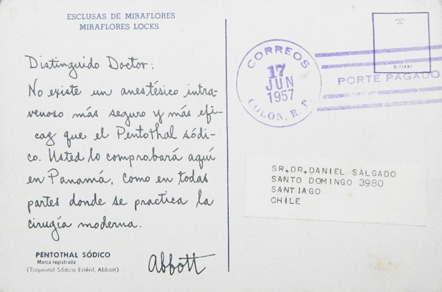 ESCLUSAS DE MIRAFLORES
MIRAFLORES LOCKS
Distinguido Doctor:
No existe un anestésico intra-
venoso más seguro y más efi-
caz que el Pentothal sódi-
co. Usted lo comprobará aquí
en Panamá, como en todas
partes donde se practica la
cirugía moderna.
Abbott
PENTOTHAL SÓDICO
Marca registrada
(Tiopental Sódico Estéril, Abbott)
CORREOS
17
JUN
1957
COLON, R. P.
PORTE PAGADO
SR.DR.DANIEL SALGADO
SANTO DOMINGO 3980
SANTIAGO
CHILE